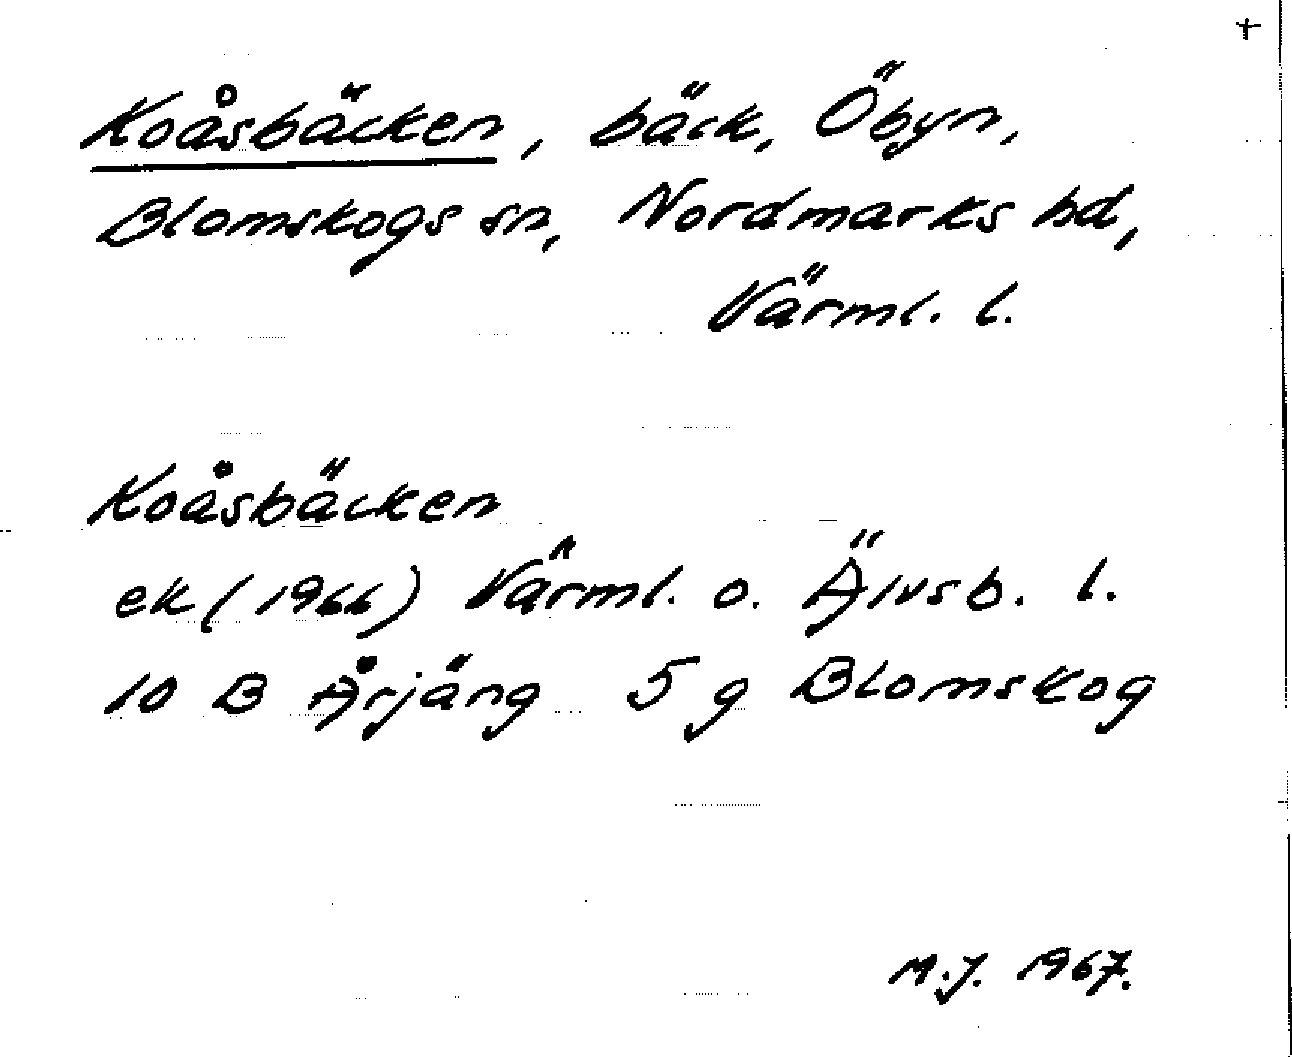 +
Koåsbäcken, bäck, Öbyn,
Blomskogs sn, Nordmarks hd,
Värml. l.
Koåsbäcken
ek (1966) Värml. o. Älvsb. l.
10 B Årjäng 5 g Blomskog
M.J. 1967.